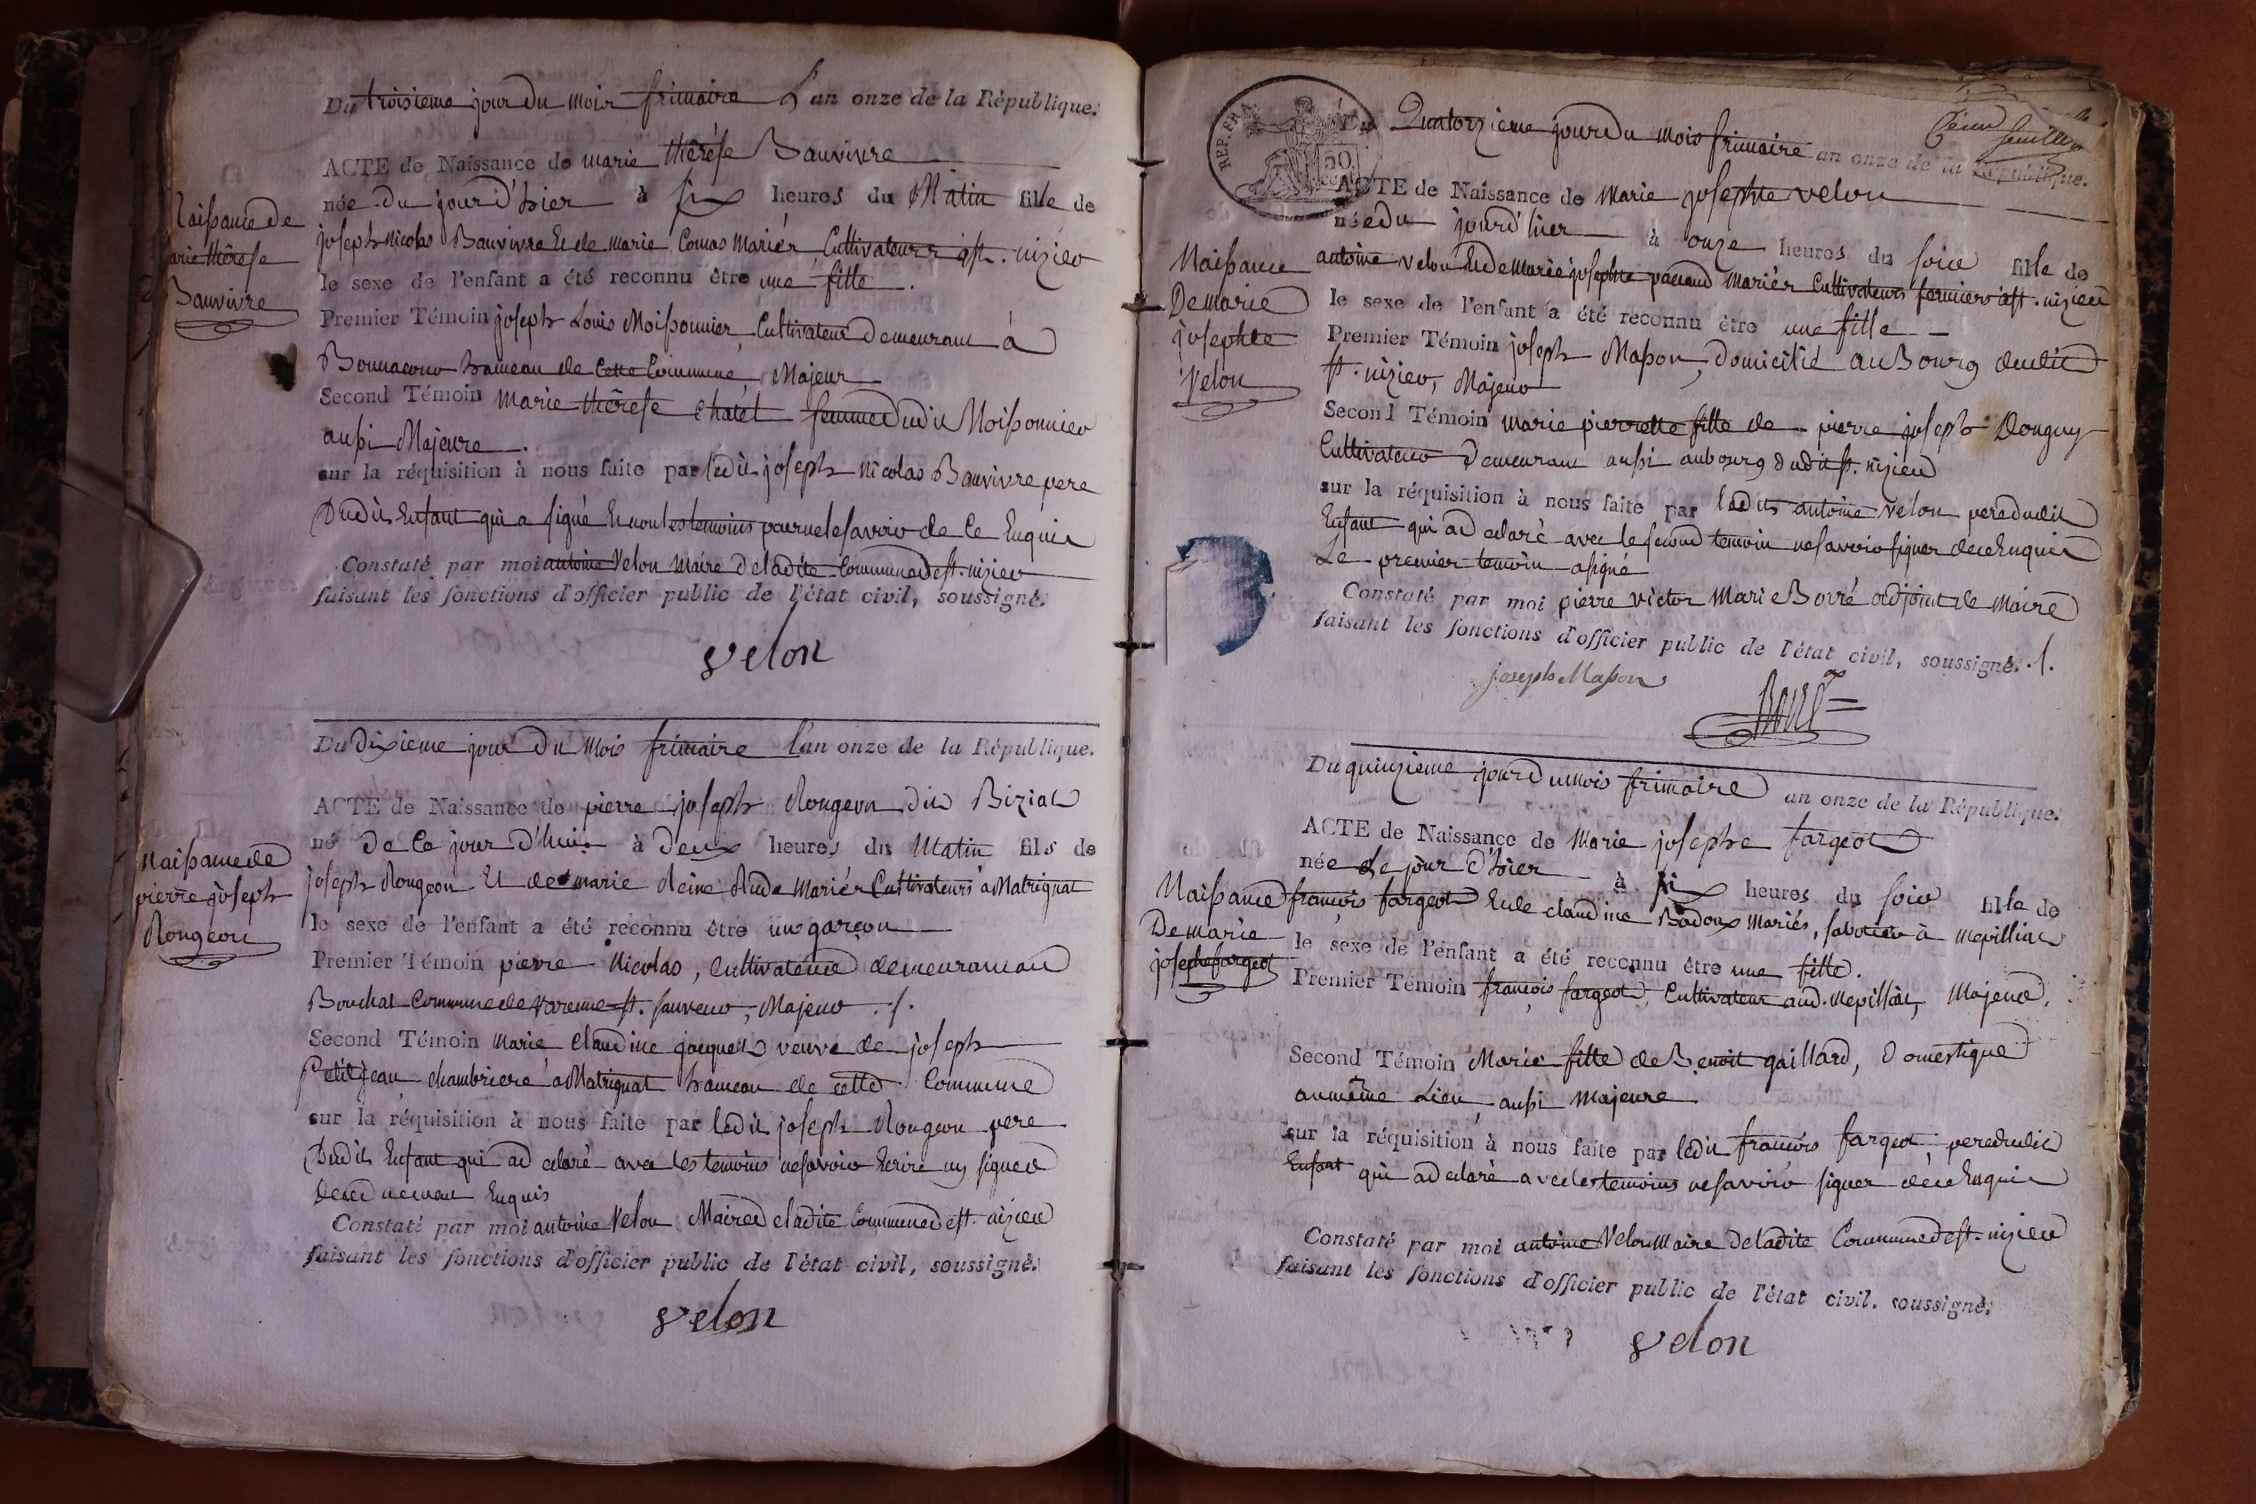 Du troisieme jour du mois frimaire L'an onze de la République.
ACTE de Naissance de marie thérése Bauvivre
née du jour d'hier à six heures du Matin fille de
joseph Nicolas Bauvivre Et de marie Comas Mariér Cultivateurs à st. nizier
le sexe de l'enfant a été reconnu être une fille.
Premier Témoin joseph Louis Moissonnier, Cultivateur demeurant à
hameau de Cette Commune, Majeur
Second Témoin Marie thérese Chatel femme dudit Moissonnier
aussi Majeure.
sur la réquisition à nous faite par ledit joseph Nicolas Bauvivre pere
Dudit Enfant qui a signé Et non les temoins pour ne le savoir de Ce Enquis
Constaté par moi antoine Velon Maire de ladite Commune de st. nizier
faisant les fonctions d'officier public de l'état civil, soussigné.
velon
Naissance de
marie thérese
Bauvivre
Du Dixieme jour Du Mois frimaire l'an onze de la République.
ACTE de Naissance de pierre joseph Rongeon dit Biziat
né de Ce jour d'hui à Deux heures du Matin fils de
joseph Rongeon Et de marie Reine Rude Mariér Cultivateurs à Matrignat
le sexe de l'enfant a été reconnu être un garçon
Premier Témoin pierre Nicolas, Cultivateur demeurant au
Bouchat Commune de Varenne st. sauveur, Majeur ./.
Second Témoin Marie Claudine jacquet veuve de joseph
Petitjean chambriere à Matrignat hameau de cette Commune
sur la réquisition à nous faite par ledit joseph Rongeon pere
Dudit Enfant qui a declaré avec les temoins ne savoir Ecrire ny signer
Enquis
Constaté par moi antoine Velon Maire de ladite Commune de st. nizier
faisant les fonctions d'officier public de l'état civil, soussigné.
velon
Naissance de
pierre joseph
Rongeon
REP. FRA.
50
feuillet
Du Quatorzieme jour du mois frimaire an onze de la République.
ACTE de Naissance de Marie josephte velon
née du jour d'hier à onze heures du soir fille de
antoine velon Et de Marie josephte pacaud Mariér Cultivateurs fermiers à st. nizier
le sexe de l'enfant a été reconnu être une fille
Premier Témoin joseph Masson, domicilié au Bourg dudit
st. nizier, Majeur
Second Témoin marie pierrette fille de pierre joseph Donguy
Cultivateur Demeurant aussi au bourg dudit st. nizier
sur la réquisition à nous faite par ledit antoine Velon pere dudit
Enfant qui a declaré avec le second temoin ne savoir signer de ce Enquis
Le premier temoin a signé
Constaté par moi pierre victor Marie Borré adjoint de Maire
faisant les fonctions d'officier public de l'état civil, soussigné. ./.
joseph Masson
Borré
Naissance
De marie
josephte
Velon
Du quinzieme jour du mois frimaire an onze de la République.
ACTE de Naissance de Marie josephe fargeot
née de jour d'hier à six heures du soir fille de
françois fargeot Et de claudine Badoux Mariés, sabotier à Mepilliat
le sexe de l'enfant a été reconnu être une fille.
Premier Témoin françois fargeot, Cultivateur aud. Mepilliat, Majeur.
Second Témoin Marie fille de Benoit gaillard, Domestique
au même Lieu, aussi Majeure
sur la réquisition à nous faite par ledit françois fargeot, pere dudit
Enfant qui a declaré avec les temoins ne savoir signer de ce Enquis
Constaté par moi antoine Velon Maire de ladite Commune de st. nizier
faisant les fonctions d'officier public de l'état civil, soussigné.
velon
Naissance
De marie
josephe fargeot